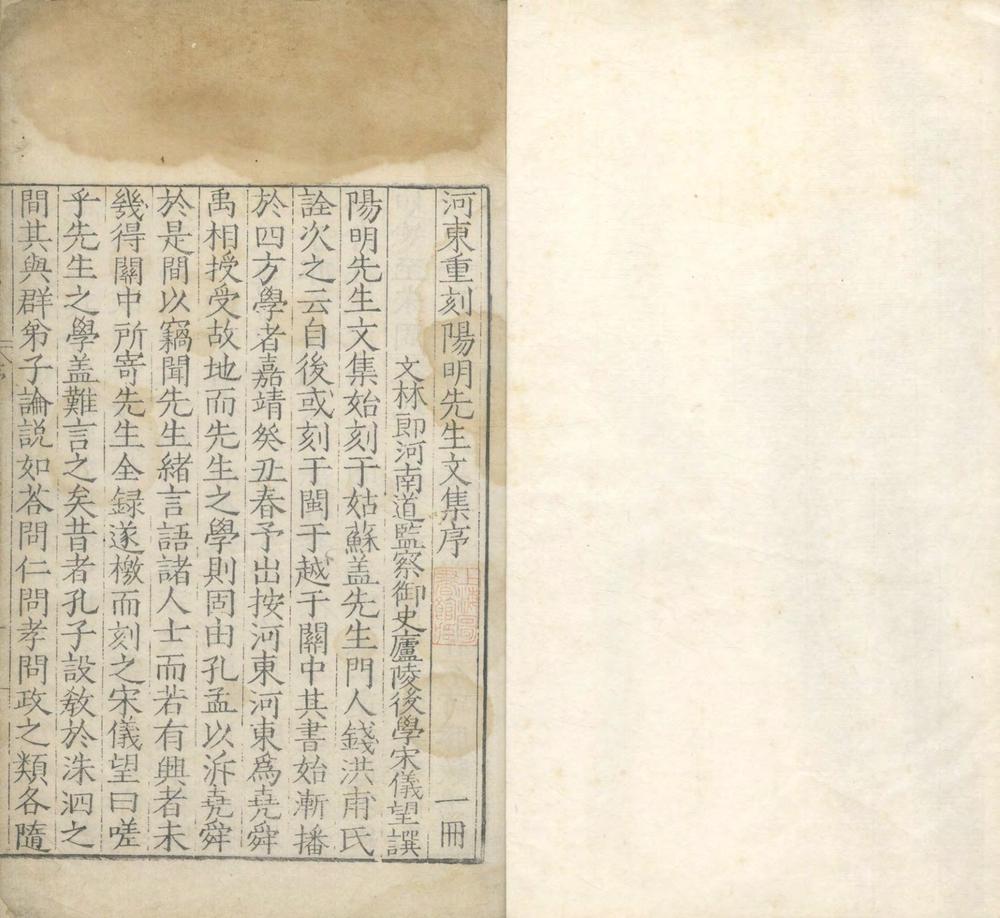 河東重刻陽明先生文集序
一冊
文林郎河南道監察御史廬陵後學宋儀望譔
陽明先生文集始刻于姑蘇盖先生門人錢洪甫氏
詮次之云自後或刻于閩于越于關中其書始漸播
於四方學者嘉靖癸丑春予出按河東河東爲堯舜
禹相授受故地而先生之學則固由孔孟以泝堯舜
於是間以竊聞先生緒言語諸人士而若有興者未
幾得關中所寄先生全録遂檄而刻之宋儀望曰嗟
乎先生之學盖難言之矣昔者孔子設敎於洙泗之
間其與群弟子論説如荅問仁問孝問政之類各隨